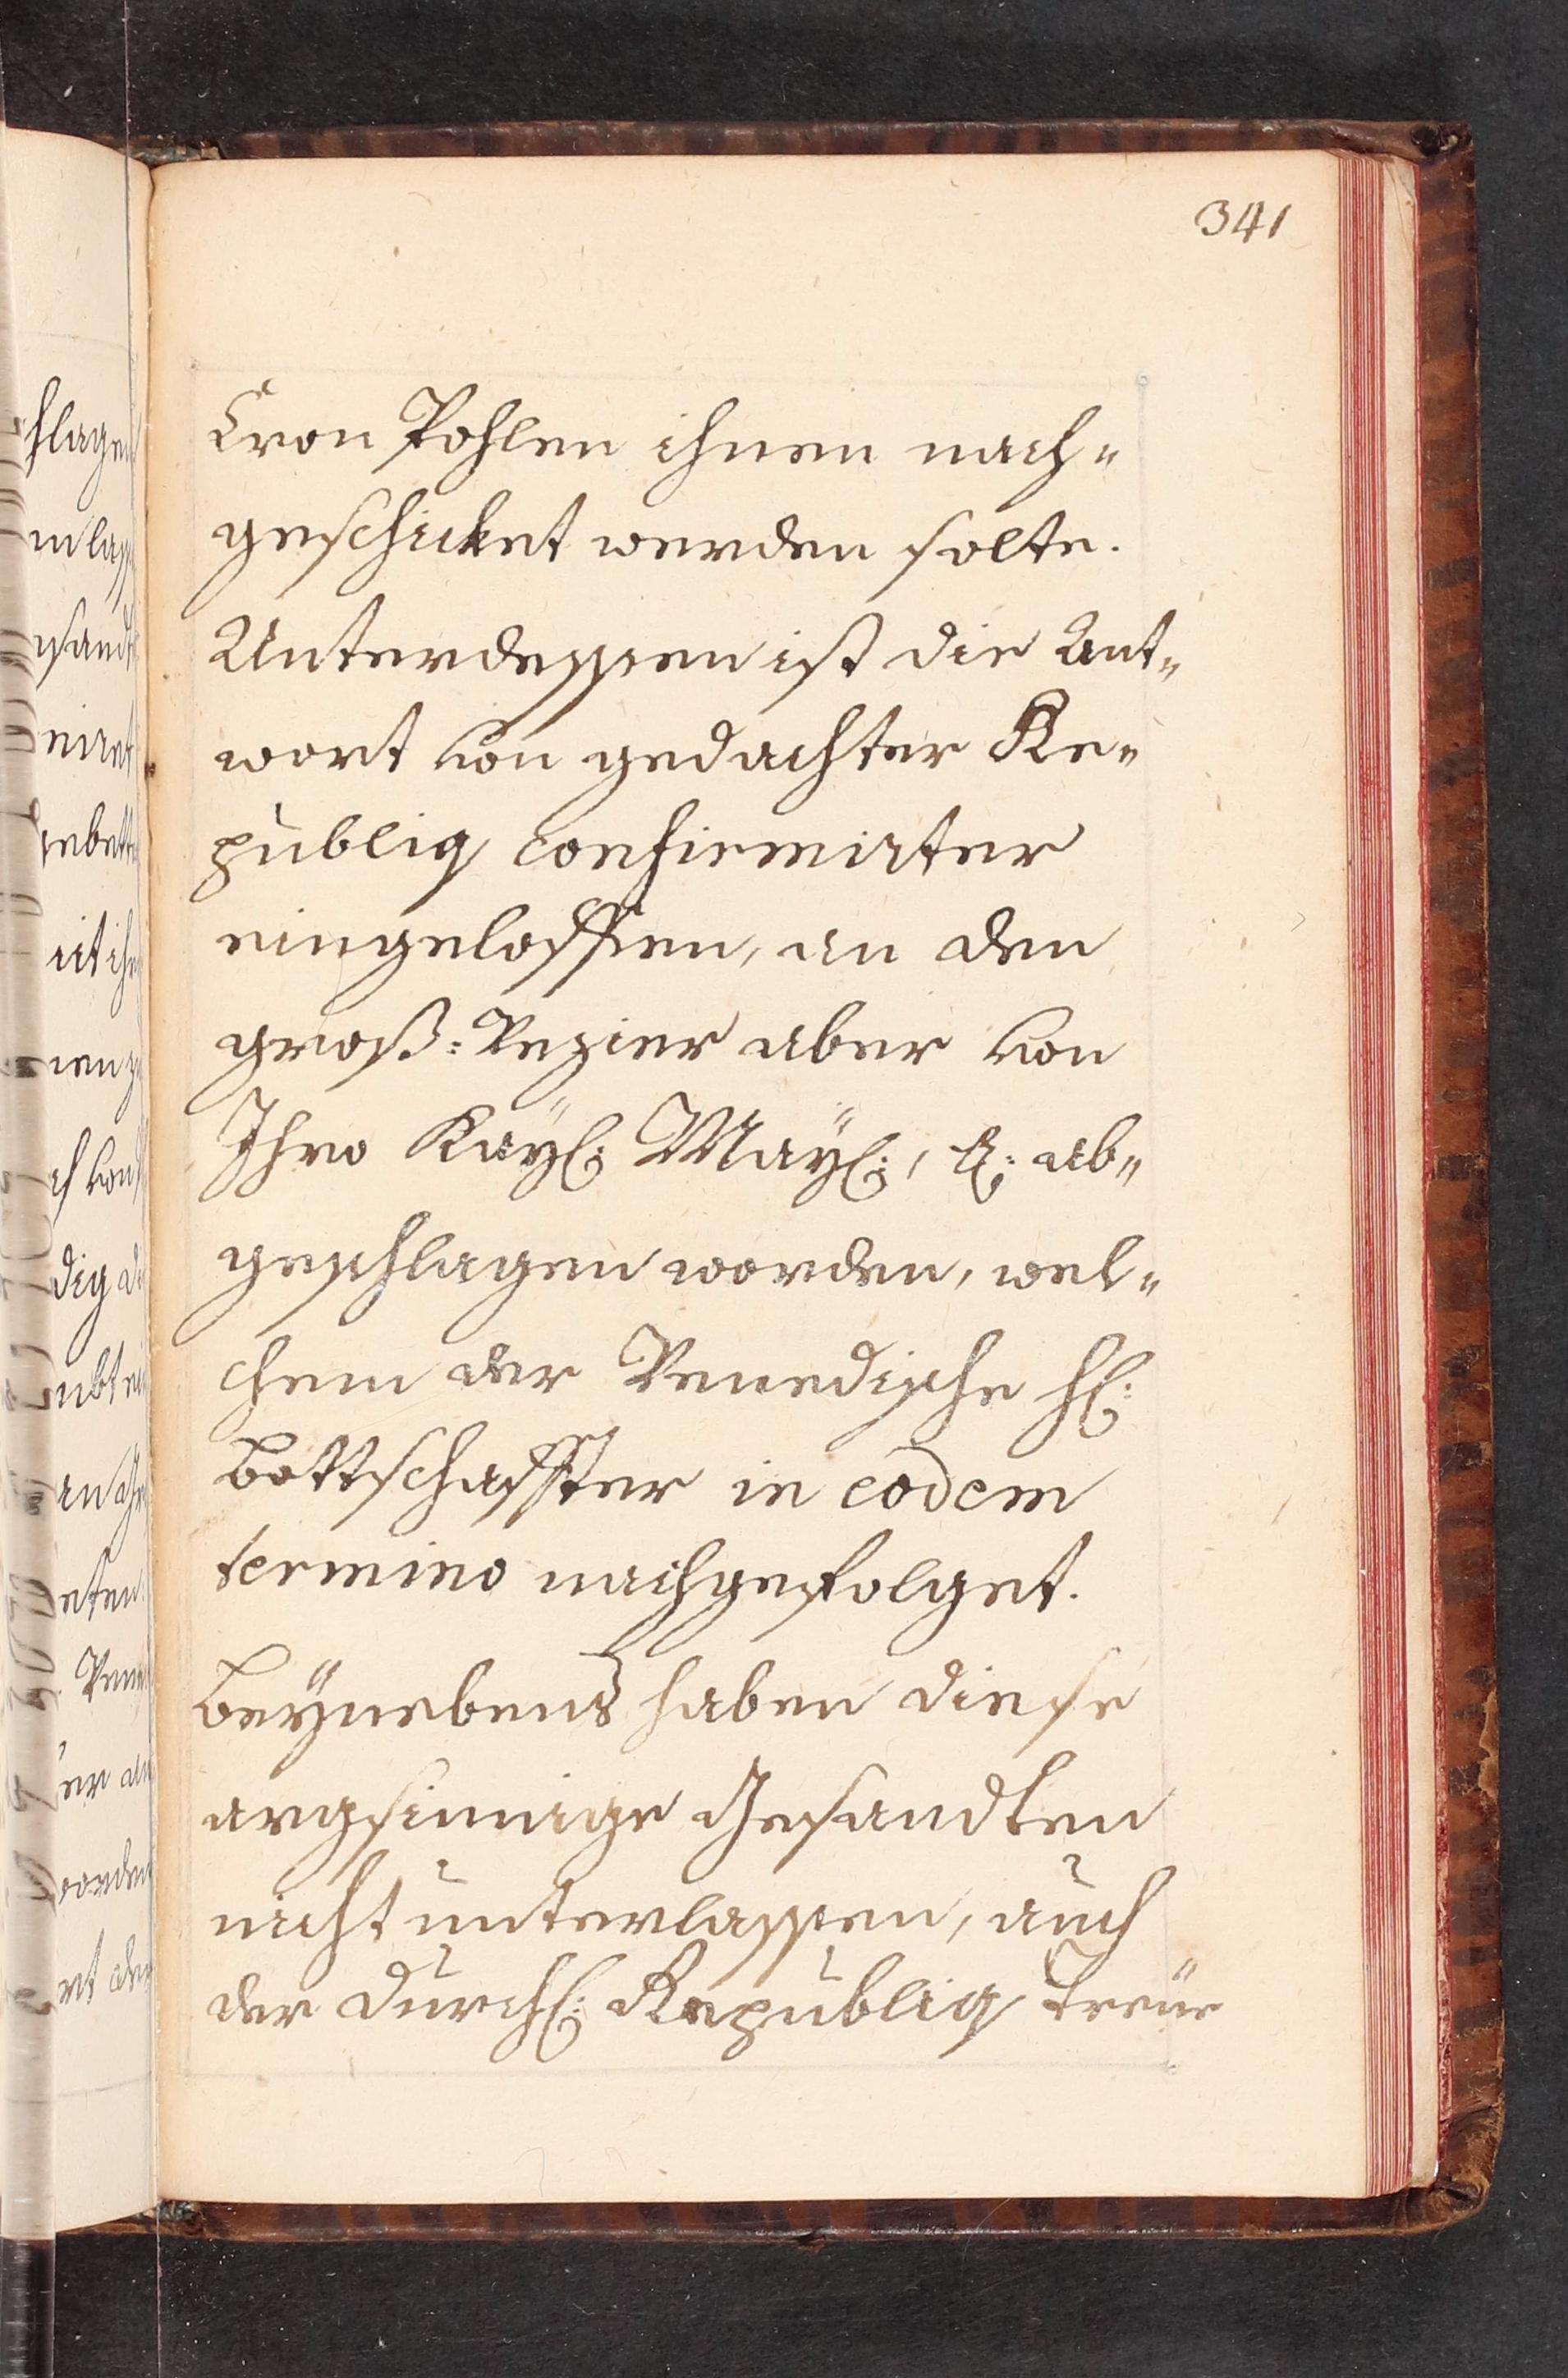 341
Cron Pohlen ihnen nach-
geschicket werden solte.
Unterdessen ist die Ant-
wort von gedachter Re-
publiq confirmirter
eingeloffen, an den
groß-Vezier aber von
Ihro Kaÿl: Maÿl:, &: ab-
geschlagen worden, wel-
chem der Venedische Hl:
Bottschaffter in eodem
termino nachgefolget.
Beÿnebens haben diese
argsinnige Gesandten
nicht unterlassen, auch
der Durchl: Republiq treüe